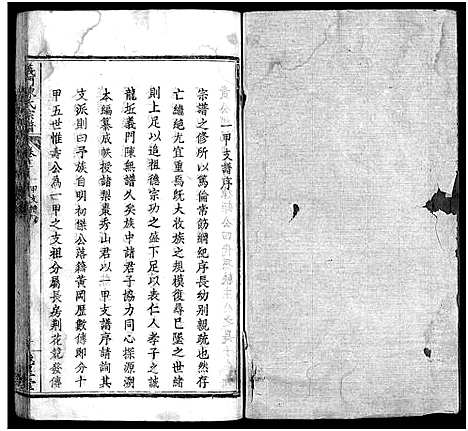 一甲支譜序
宗譜之修所以篤倫常飭綱紀序長幼別親疏也然存
亡繼絕尤宜重焉既大收族之規模復尋已墜之世緒
則上足以追祖德宗功之盛下足以表仁人孝子之誠
龍坵義門陳無譜久矣族中諸君子協力同心探源溯
本編纂成帙授諸梨棗秀山君以一甲支譜序請詢其
支派則曰予族自明初傑公落籍黃岡歷數傳即分十
甲五世惟壽公為一甲之支祖分屬長房荊花競發傳
義門陳氏宗譜
卷
一甲支譜序